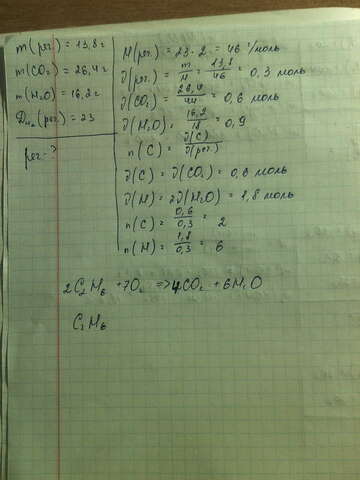 m(рег.) = 13,8 г
m(CO₂) = 26,4 г
m(H₂O) = 16,2 г
D_H₂(рег.) = 23
рег - ?
M(рег.) = 23 · 2 = 46 г/моль
ν(рег.) = m/M = 13,8/46 = 0,3 моль
ν(CO₂) = 26,4/44 = 0,6 моль
ν(H₂O) = 16,2/18 = 0,9
n(C) = ν(C)/ν(рег.)
ν(C) = ν(CO₂) = 0,6 моль
ν(H) = 2ν(H₂O) = 1,8 моль
n(C) = 0,6/0,3 = 2
n(H) = 1,8/0,3 = 6
2C₂H₆ + 7O₂ => 4CO₂ + 6H₂O
C₂H₆